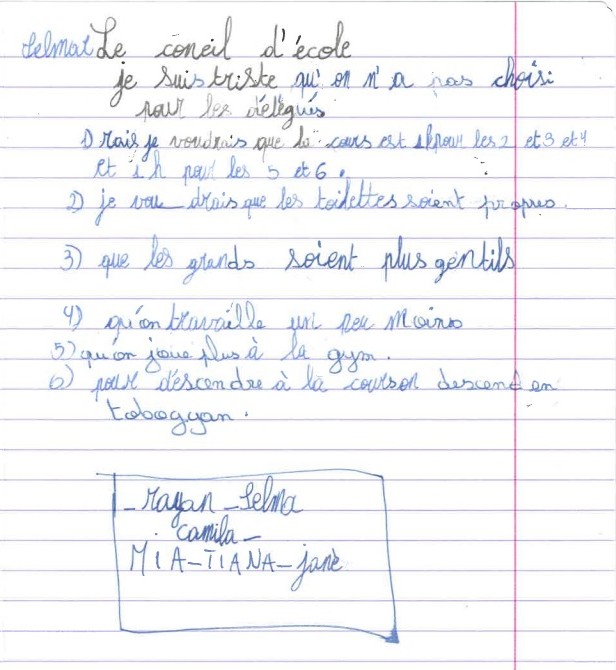 Selma Le coneil d'école
je suis triste qu'on n'a pas choisi
pour les délégués
1) Mais je voudrais que la cours est 1h pour les 2 et 3 et 4
et 1h pour les 5 et 6.
2) je voudrais que les toilettes soient propres.
3) que les grands soient plus gentils
4) qu'on travaille un peu moins
5) qu'on joue plus à la gym.
6) pour descendre à la cour on descend en
toboggan.
- Rayan - Selma
camila -
MiA - TIANA - jane